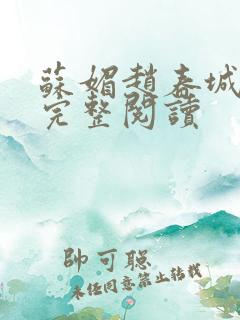 蘇媚趙春城
完整閱讀
帥可聰
未经同意禁止转载